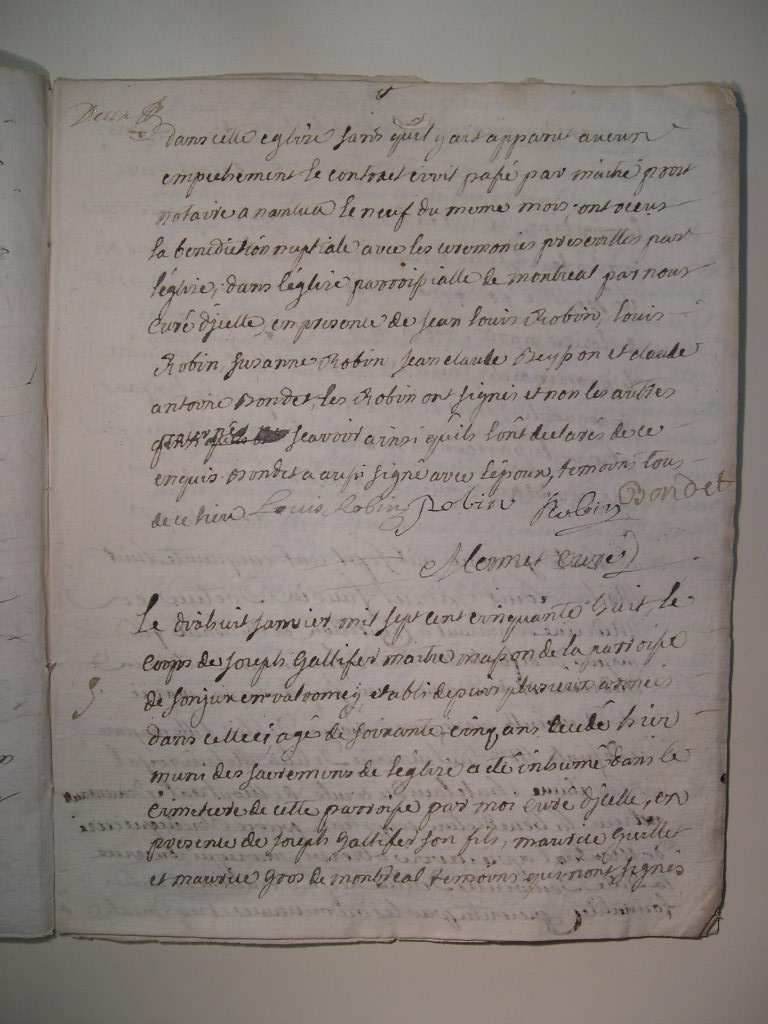 Deux
dans cette eglise sans quil y ait apparut aucun
empechement le contract ecrit passé par maitre
notaire a nantua le neuf du meme mois, ont receus
la benediction nuptiale avec les ceremonies prescrittes par
léglise, dans léglise parroissialle de montreal par nous
Curé dycelle, en presence de jean Louis Robin, louis
Robin, Suzanne Robin, jean claude Beysson et claude
antoine Bondet, les Robin ont signés et non les autres
scavoir ainsi quils l'ont declarés de ce
enquis. Bondet a aussi signé avec lépoux, temoins tous
de ce lieu Louis Robin Robin Robin Bondet
Mermet Curé
Le dixhuit janvier mil sept cent cinquante huit, le
Corps de Joseph Gallifer maitre masson de la parroisse
de Sonjux en valromey, etabli depuis plusieurs années
dans celle ci agé de soixante cinq ans decedé hier
muni des sacremens de léglise a eté inhumé dans le
Cimetiere de cette parroisse par moi Curé dycelle, en
presence de joseph Gallifer son fils, maurice Guillet
et maurice Goos de montreal temoins qui n'ont signés